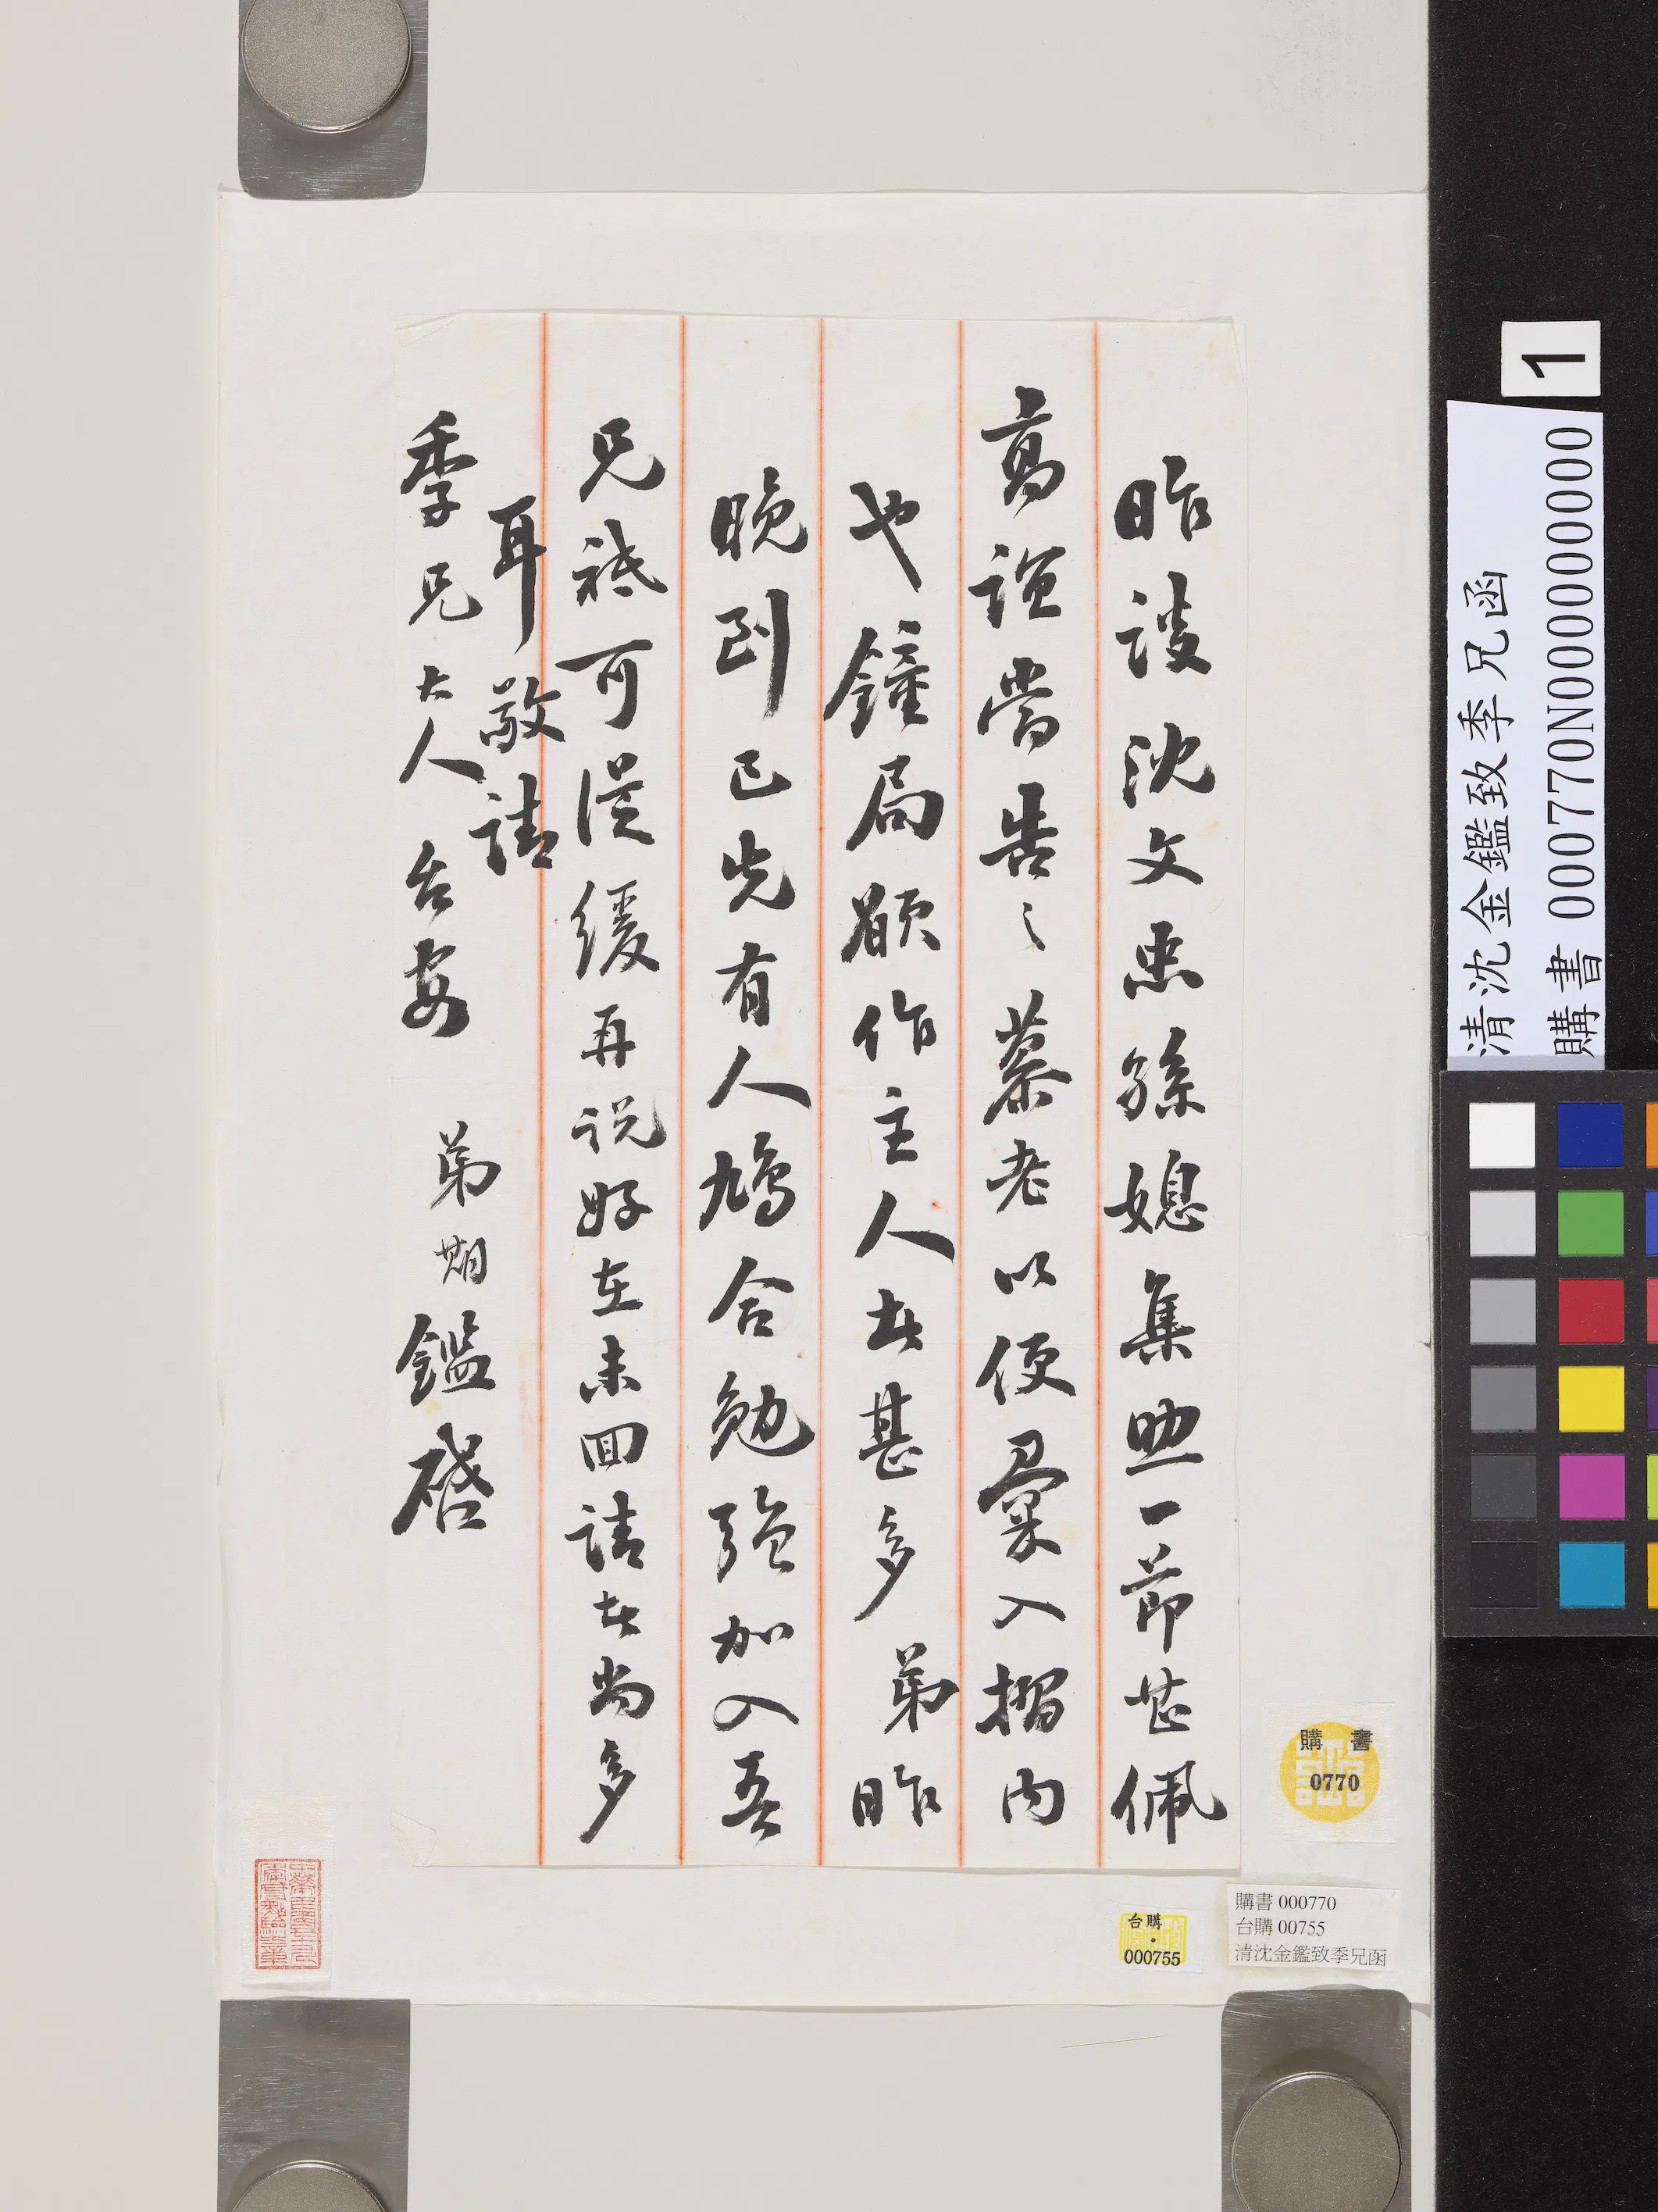 昨談沈文忠孫媳集照一節甚佩
高誼當告之慕老以便彙入摺內
也鐘局願作主人者甚多弟昨
晚到已先有人鳩合勉強加入吾
兄祇可從緩再說好在未回請者尚多
耳敬請
季兄大人台安
弟期鑑啓
清沈金鑑致季兄函
購書 000770N000000000
1
購書
0770
購書 000770
台購 00755
清沈金鑑致季兄函
台購
000755